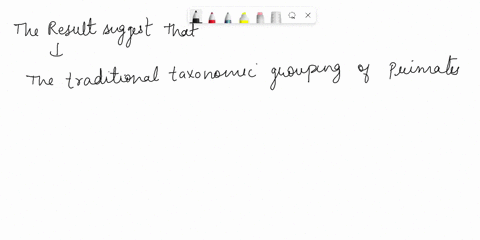 The Result suggest that
The traditional taxonomic grouping of Primates